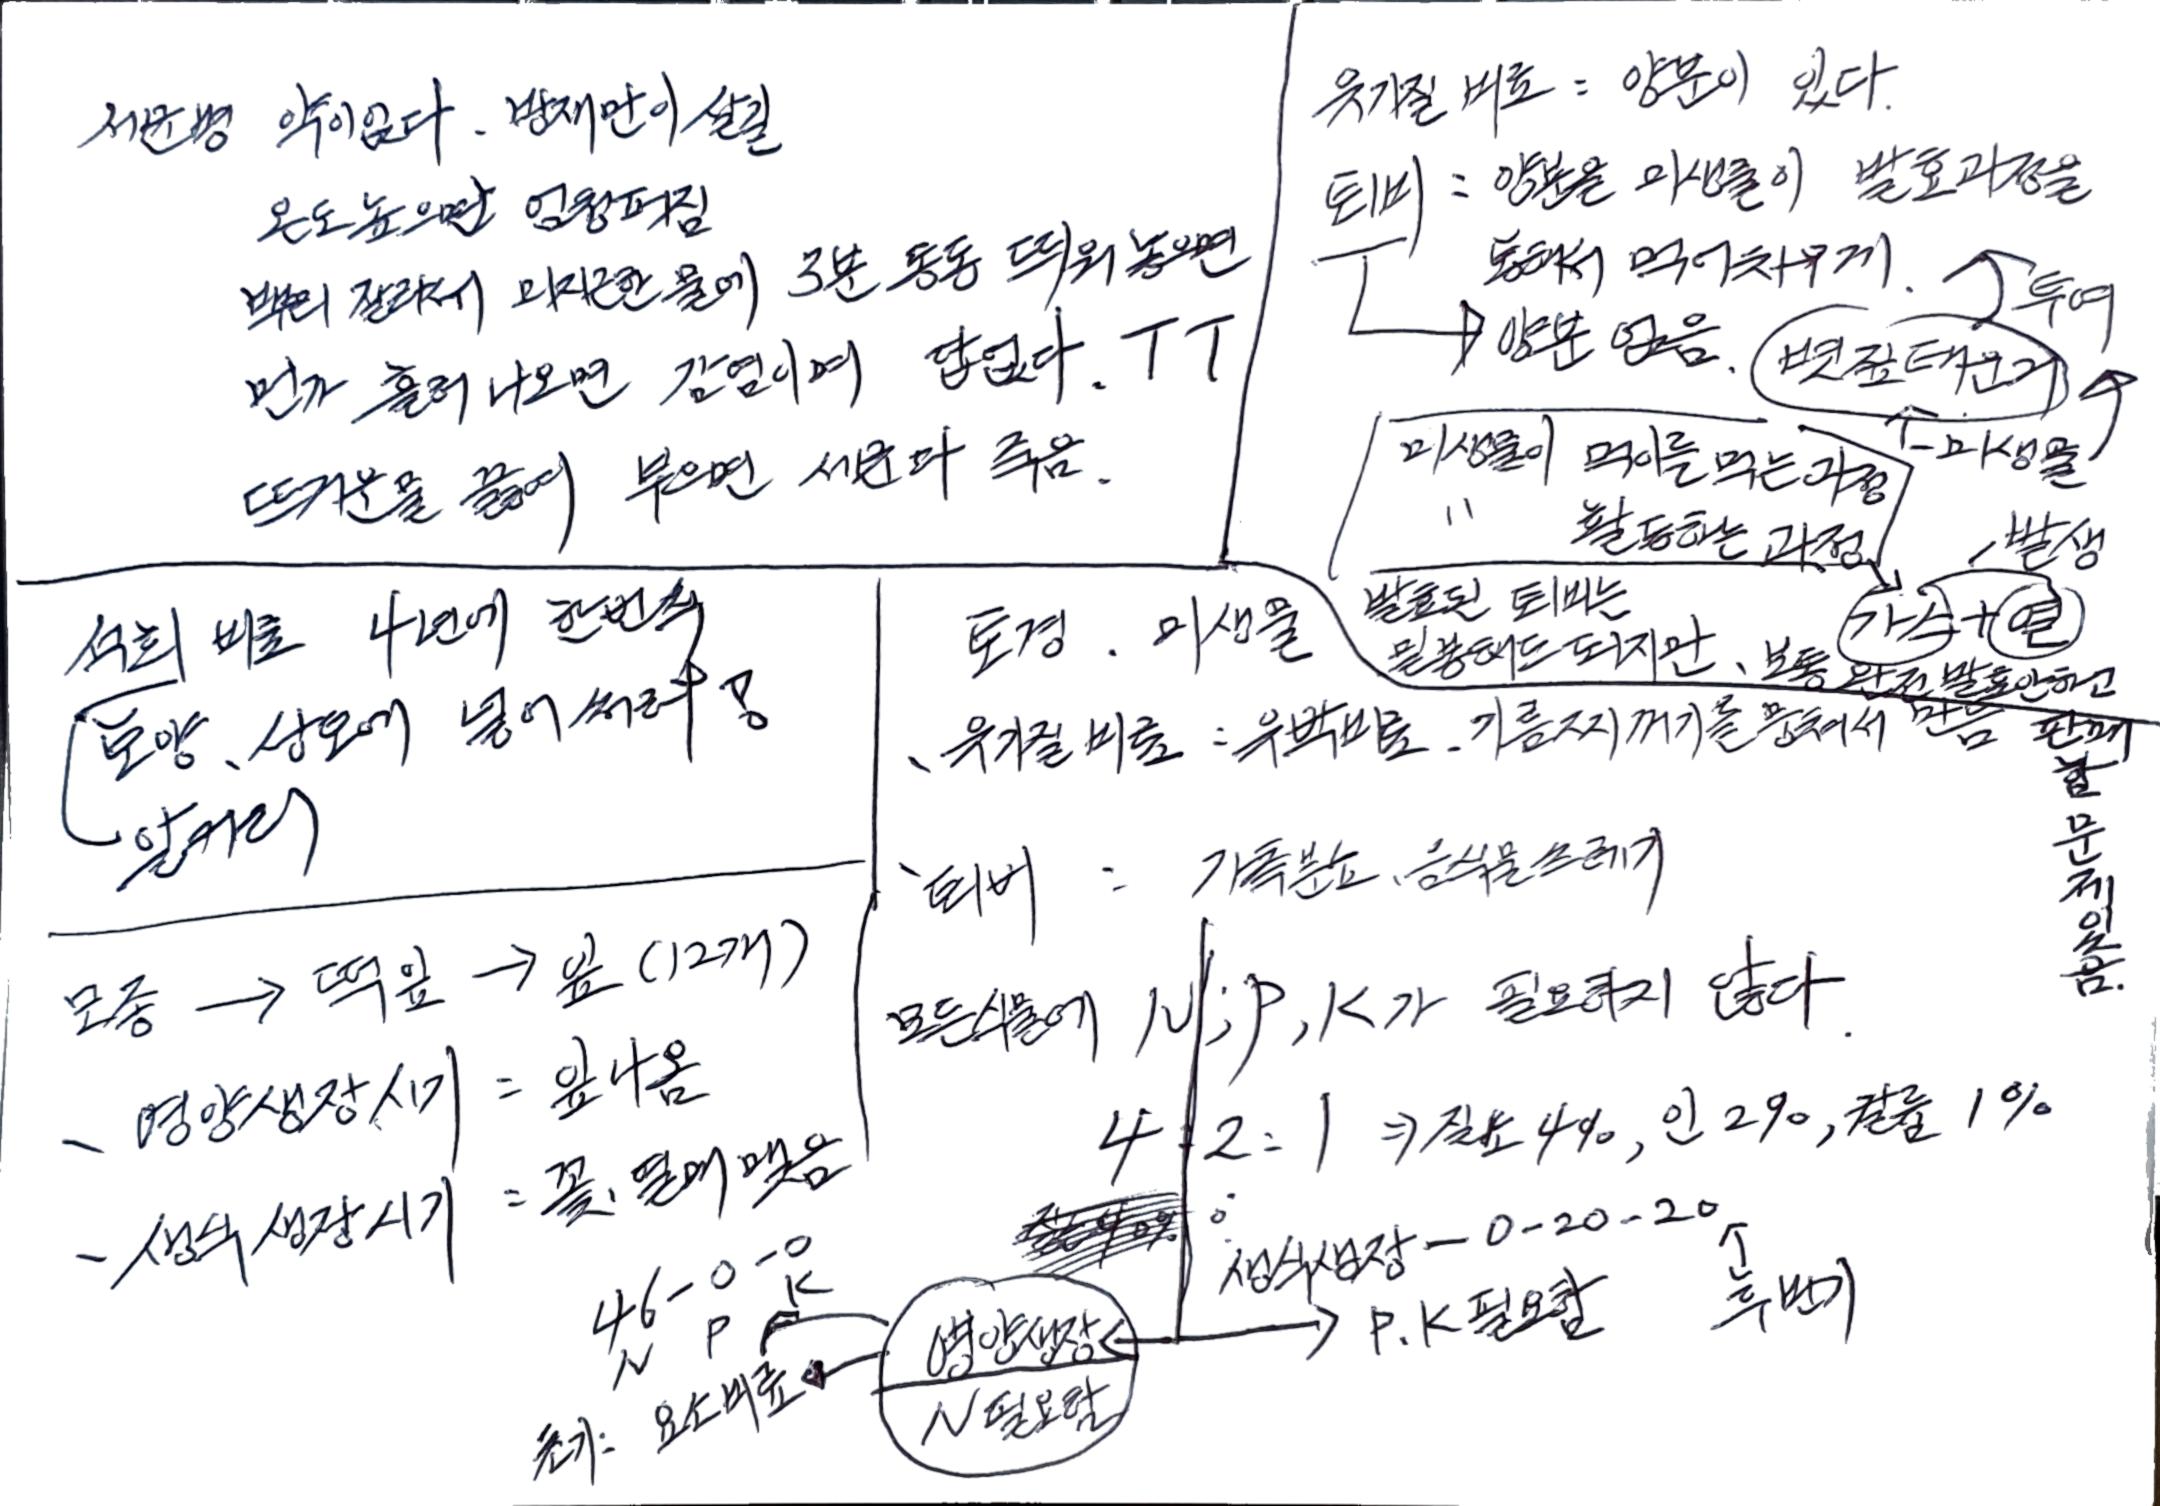 세균병 약이없다. 방재만이 살길
온도높으면 엄청퍼짐
뿌리 잘라서 미지근한 물에 3분 동동 띄워 놓으면
먼가 흘러나오면 감염이며 답없다. ㅜㅜ
뜨거운물 끓여 부으면 세균다 죽음.
유기질 비료 = 양분이 있다.
퇴비 = 양분을 미생물이 발효과정을
통해서 먹어치우게.
투여
양분 없음.
볏짚태운거
미생물
미생물이 먹이를 먹는 과정
" 활동하는 과정
발생
가스+열
발효된 퇴비는
밀봉해도 되지만, 보통 완전발효안하고
판매
함
문
제
있
음.
석회 비료 4년에 한번씩
토양, 상토에 넣어 써라
알카리
토경. 미생물
유기질 비료 = 유박비료. 기름찌꺼기를 뭉쳐서 만듬
퇴비 = 가축분뇨, 음식물쓰레기
모종 → 떡잎 → 잎 (12개)
- 영양생장시기 = 잎나옴
- 생식생장시기 = 꽃, 열매 맺음
모든식물에 N, P, K가 필요하지 않다.
4 : 2 : 1 ⇒ 질소 4%, 인 2%, 칼륨 1%
생식생장 - 0-20-20
P.K 필요함
후반기
46-0-0
N P K
영양생장
N 필요함
초기: 요소비료